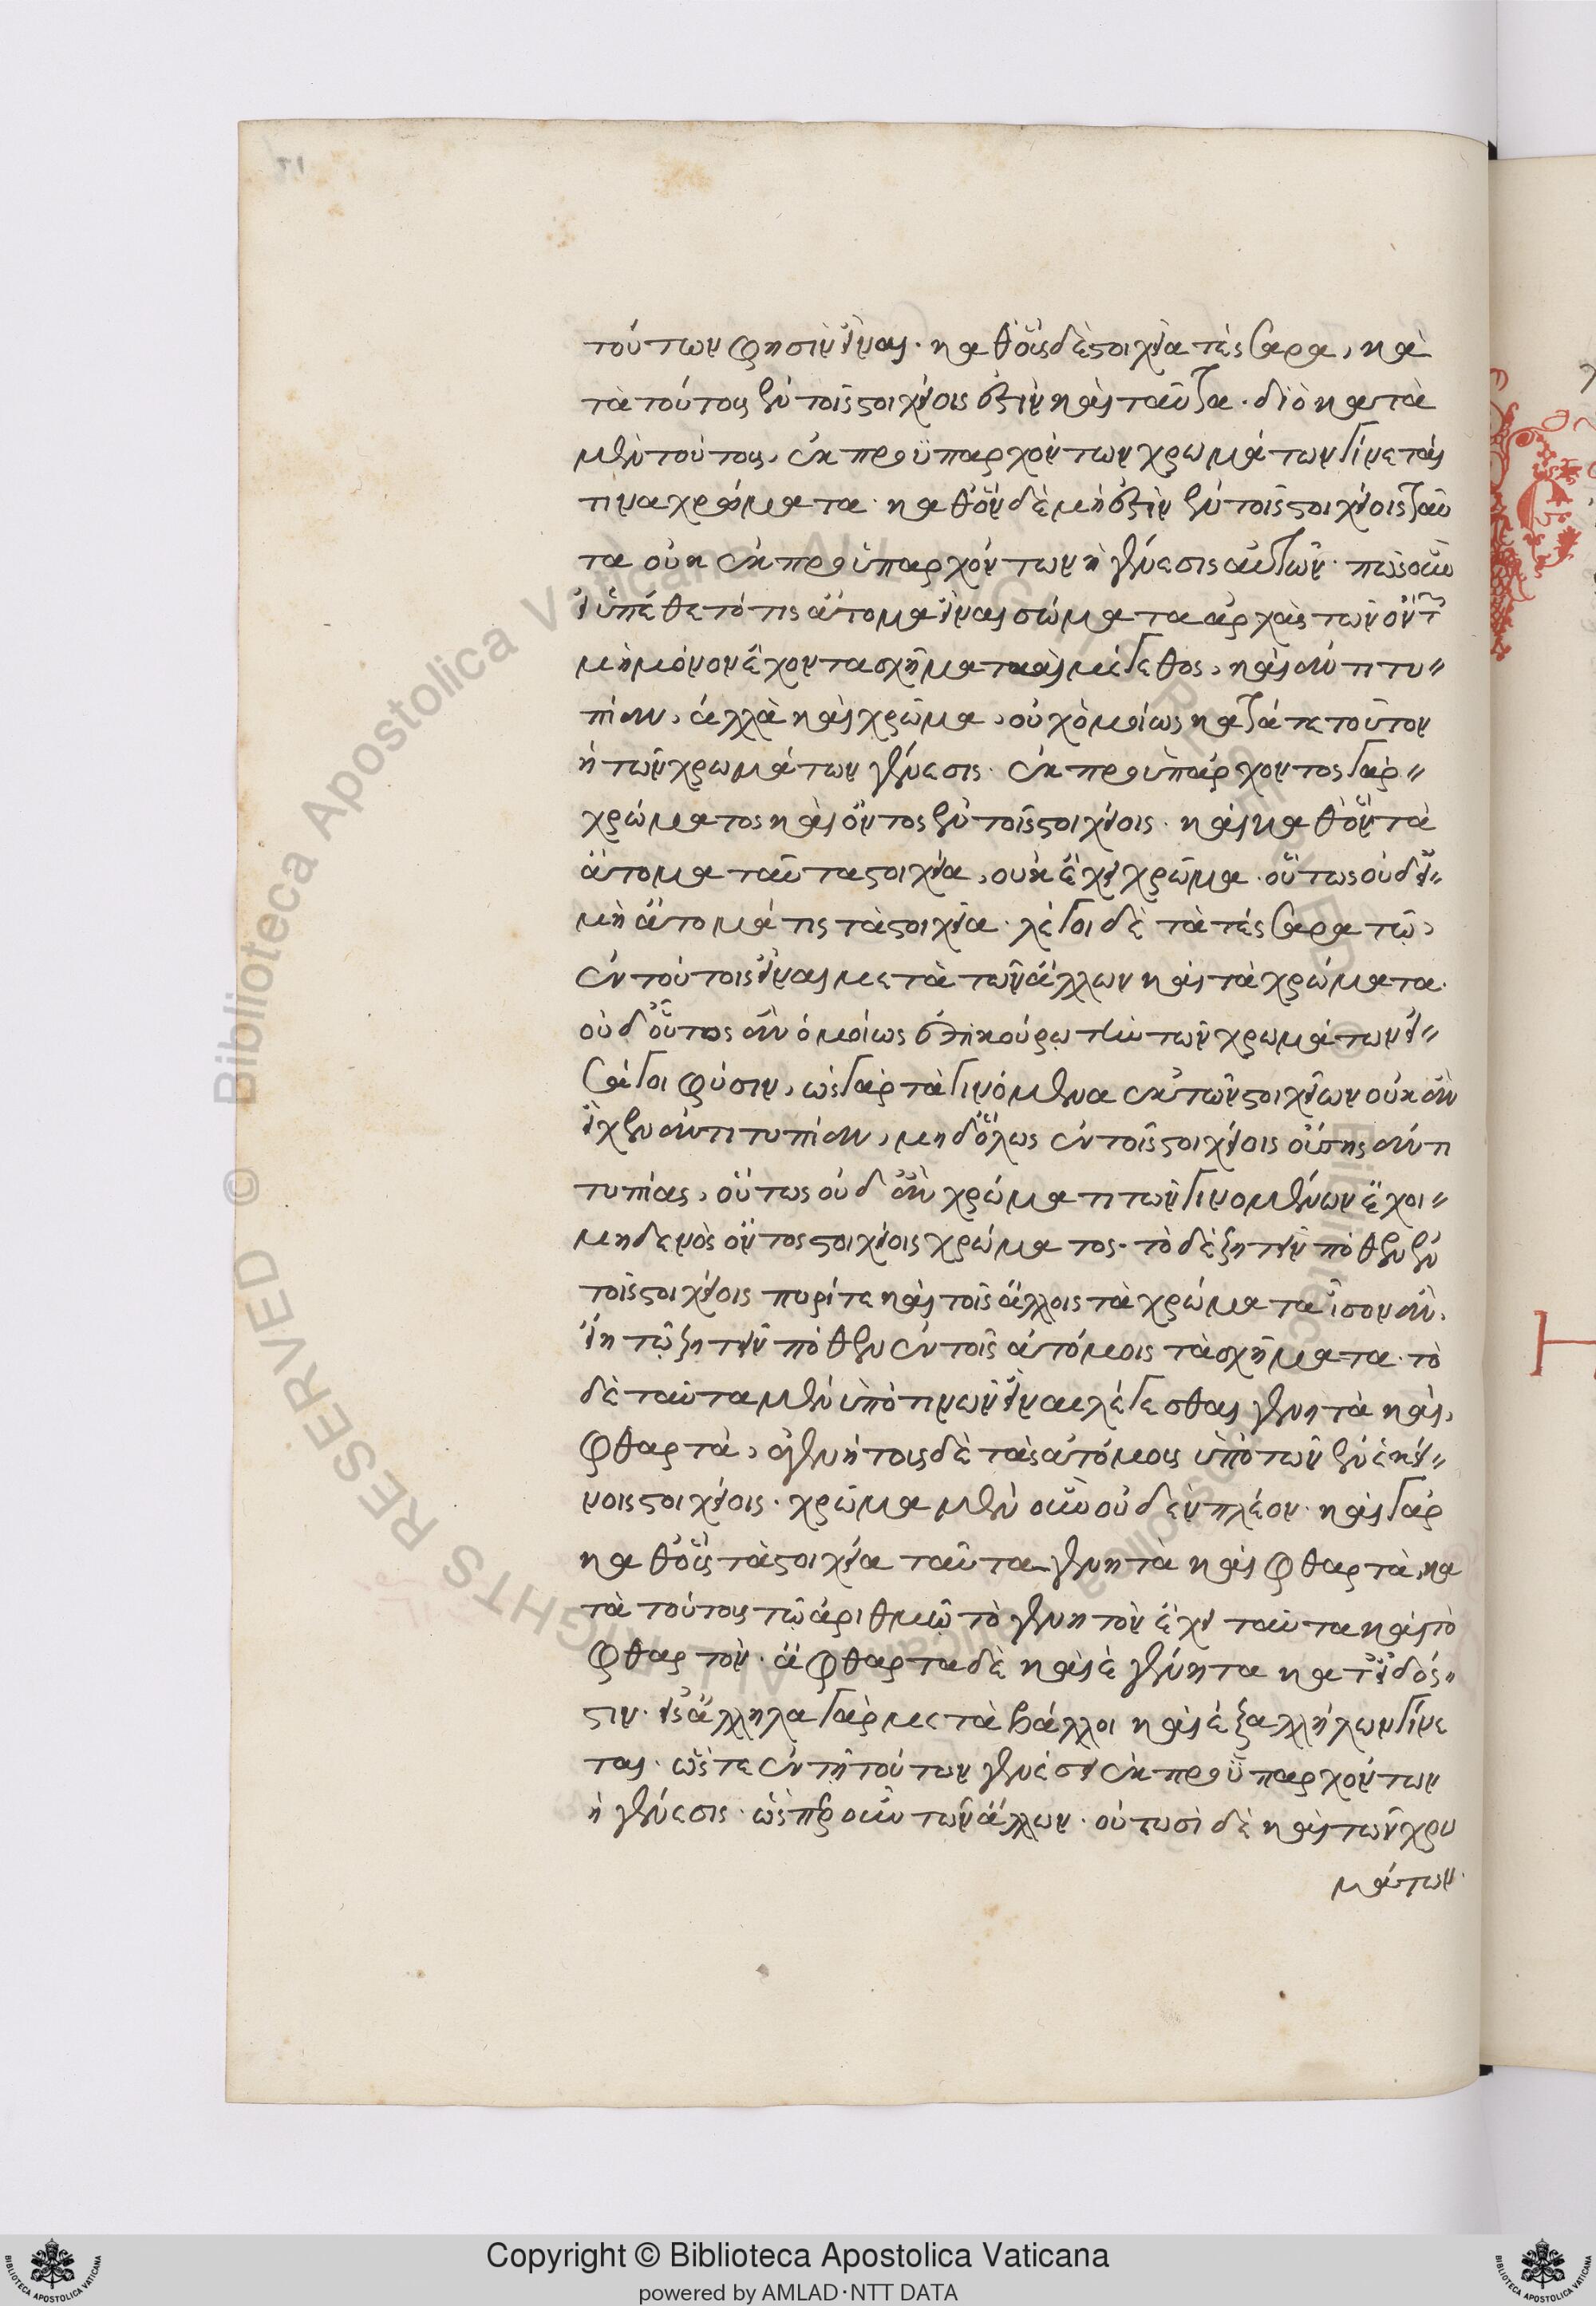 τούτων φησὶν εἶναι. καθοὓς δὲ στοιχεῖα τέσσαρα, κα
τὰ τούτους ἐν τοῖς στοιχείοις ἐστὶν καὶ ταῦτα. διὸ κατὰ
μὲν τούτους, ἐκ προϋπαρχόντων χρωμάτων γίνεταί
τινα χρώματα. καθ' ὃν δὲ μή ἐστιν ἐν τοῖς στοιχείοις ταῦ
τα οὐκ ἐκ προϋπαρχόντων ἡ γένεσις αὐτῶν. πῶς οὖν
εἰ ὑπέθετό τις ἄτομα εἶναι σώματα ἀρχὰς τῶν ὄντ
μὴ μόνον ἔχοντα σχῆμα καὶ μέγεθος, καὶ ἀντιτυ
πίαν, ἀλλὰ καὶ χρῶμα, οὐχ ὁμοίως κατά τε τοῦτον
ἡ τῶν χρωμάτων γένεσις. ἐκ προϋπάρχοντος γὰρ
χρώματος καὶ ὄντος ἐν τοῖς στοιχείοις. καὶ καθ' ὃν τὰ
ἄτομα ταῦτα στοιχεῖα, οὐκ ἔχει χρῶμα. οὕτως οὐδ' εἰ
μὴ ἄτομά τις τὰ στοιχεῖα. λέγοι δὲ τὰ τέσσαρα τῷ,
ἐν τούτοις εἶναι μετὰ τῶν ἄλλων καὶ τὰ χρώματα.
οὐδ' οὗτος ἂν ὁμοίως ἐπικούρῳ τὴν τῶν χρωμάτων εἰ
σάγοι φύσιν, ὡς γὰρ τὰ γινόμενα ἐκ τῶν στοιχείων οὐκ ἂν
εἶχεν ἀντιτυπίαν, μηδ' ὅλως ἐν τοῖς στοιχείοις οὔσης ἀντι
τυπίας, οὕτως οὐδ' ἂν χρῶμά τι τῶν γινομένων ἔχοι
μηδενὸς ὄντος στοιχείοις χρώματος. τὸ δὲ ζητεῖν πόθεν ἐν
τοῖς στοιχείοις πυρί τε καὶ τοῖς ἄλλοις τὰ χρώματα ἴσον ἂν,
εἴη τῷ ζητεῖν πόθεν ἐν τοῖς ἀτόμοις τὰ σχήματα. τὸ
δὲ ταῦτα μὲν ὑπό τινων εἶναι λέγεσθαι γενητὰ καὶ,
φθαρτὰ, ἀγενήτους δὲ τὰς ἀτόμους ὑπὸ τῶν ἐν ἐκεί
νοις στοιχείοις. χρῶμα μὲν οὖν οὐδὲν πλέον. καὶ γὰρ
καθ' οὓς τὰ στοιχεῖα ταῦτα γενητὰ καὶ φθαρτὰ, κα
τὰ τούτους τῷ ἀριθμῷ τὸ γενητὸν ἔχει ταῦτα καὶ τὸ
φθαρτόν. ἄφθαρτα δὲ καὶ ἀγένητα κατ' εἶδός
ἐστιν. εἰς ἄλληλα γὰρ μεταβάλλοι καὶ ἐξ ἀλλήλων γίνε
ται. ὥστε ἐν τῇ τούτων γενέσει ἐκ προϋπαρχόντων
ἡ γένεσις. ὥσπερ οὖν τῶν ἄλλων. οὑτωσὶ δὲ καὶ τῶν χρω
μάτων.
Copyright © Biblioteca Apostolica Vaticana
powered by AMLAD·NTT DATA